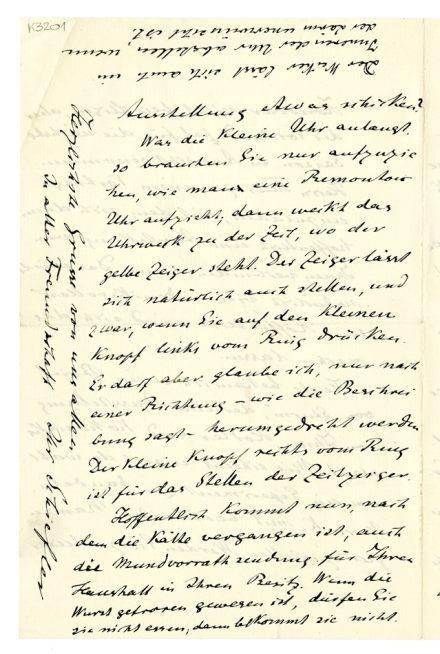 K3201
Ausstellung etwas schicken?
Was die kleine Uhr anlangt,
so brauchen Sie nur aufzuzie
hen, wie man eine Remontoir
Uhr aufzieht; dann weckt das
Uhrwerk zu der Zeit, wo der
gelbe Zeiger steht. Der Zeiger lässt
sich natürlich auch stellen, und
zwar, wenn Sie auf den kleinen
Knopf links vom Ring drücken.
Er darf aber glaube ich, nur nach
einer Richtung – wie die Beschrei
bung sagt – herumgedreht werden
Der kleine Knopf rechts vom Ring
ist für das Stellen der Zeitzeiger.
Hoffentlich kommt nun, nach
dem die Kälte vergangen ist, auch
die Mundvorrathsendung für Ihren
Haushalt in Ihren Besitz. Wenn die
Wurst gefroren gewesen ist, dürfen Sie
sie nicht essen, dann bekommt sie nicht.
Herzlichste Grüsse von uns allen
In alter Freundschaft Ihr Schiefler
Der Wecker lässt sich auch im
Inneren der Uhr abstellen, wenn
der Lärm unerwünscht ist.